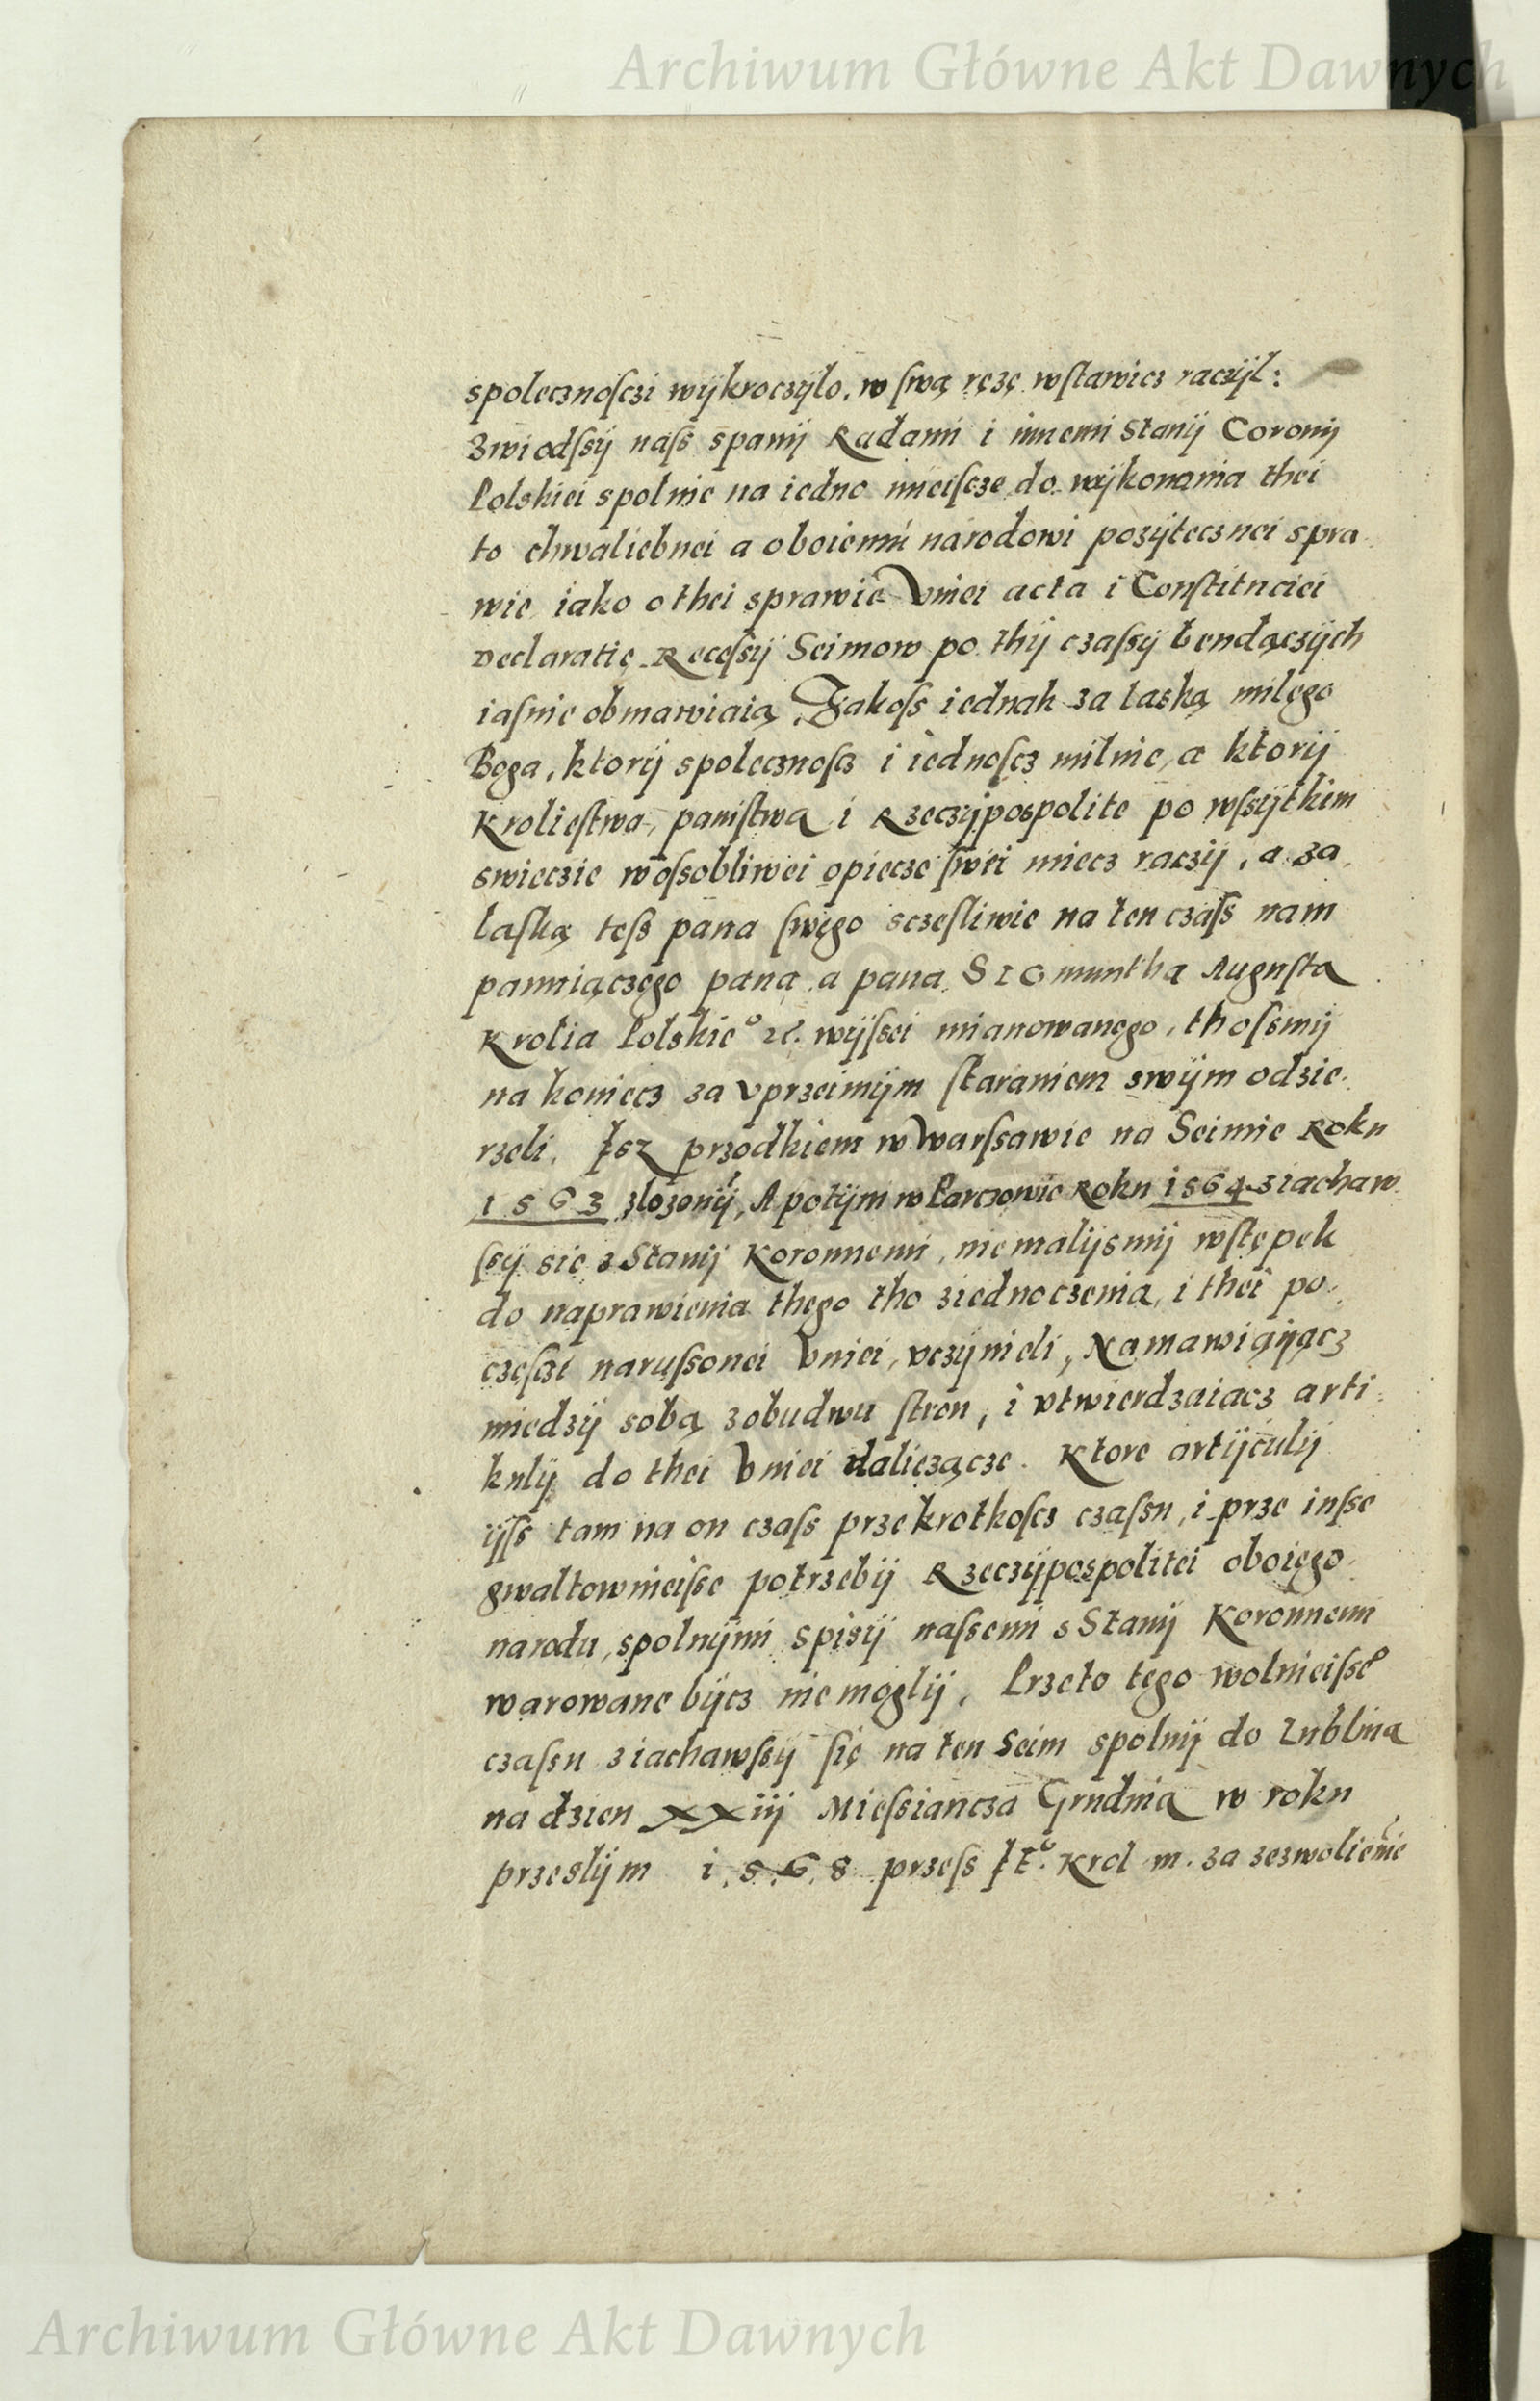 Archiwum Główne Akt Dawnych
społecznosczi wÿkroczÿlo, w swą ręzę wstawicz raczÿl:
Zwiodssÿ nass spanÿ Radami i innemi Stanÿ Coronÿ
Polskiei spolnie na iedno mieiscze do wÿkonania thei
to chwaliebnei a oboiemu narodowi pozÿtecznei spra
wie iako o thei sprawie Vniei acta i Constitnciei
Declaratię Recessÿ Seimow po thÿ czassÿ bendączÿch
iasnie obmawiaią, Jakoss iednak za laską milęgo
Boga, ktorÿ spolecznoscz i iednoscz milnie, a ktorÿ
Kroliestwa, panistwa i Rzeczÿpospolite po wssÿtkiem
swieczie wossobliwei opiecze swei miecz raczÿ, a za
laską tess pana swego sczesliwie na ten czass nam
panniączego pana a pana SIGmuntha Augusta
Krolia Polskieᵒ &c. wÿssei mianowanego, thossmÿ
na koniecz za vprzeimÿm staraniem swÿm odzie
rzeli, Isz przodkiem w Warssawie na Seimie Roku
1563 zlozonÿ, A potÿm w Parczowie Roku 1564 ziachaw
ssÿ sie z Stanÿ Koronnemi, niemalÿsmÿ wstępek
do naprawienia thego tho ziednoczenia, i thei po
czesczi narussonei Vniei, vczÿnieli, Namawiąÿącz
miedzÿ sobą zobudwu stron, i vtwierdzaiacz arti
kulÿ do thei Vniei naliezącze. Ktore artÿculÿ
ÿss tam na on czass prze krotkoscz czassu, i prze insse
gwaltownieisse potrzebÿ Rzeczÿpospolitei oboiego
narodu, spolnÿmi spisÿ nassemi s Stanÿ Koronnemi
warowane bÿcz nie moglÿ, Przeto tego wolnieisseᵒ
czassu ziachawssÿ się na ten Seim spolnÿ do Lublina
na dzien XXiij Miessiancza Grudnia w roku
przeslÿm 1568 przess Itᵒ. Krol m. za zezwolienie
Archiwum Główne Akt Dawnych